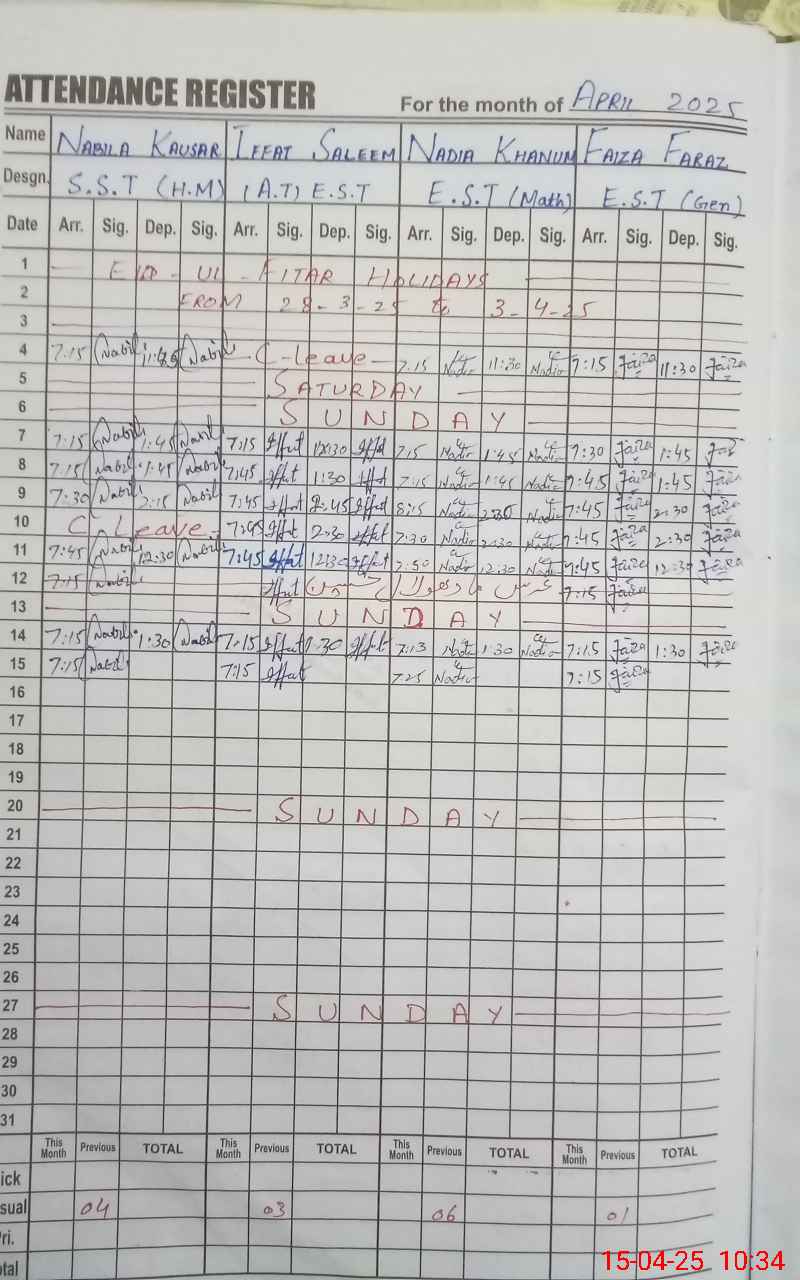 ATTENDANCE REGISTER For the month of APRIL 2025
Name NABILA KAUSAR IFFAT SALEEM NADIA KHANUM FAIZA FARAZ
Desgn. S.S.T (H.M) (A.T) E.S.T E.S.T (Math) E.S.T (Gen)
Date Arr. Sig. Dep. Sig. Arr. Sig. Dep. Sig. Arr. Sig. Dep. Sig. Arr. Sig. Dep. Sig.
1 EID - UL - FITAR HOLIDAYS
2 FROM 28-3-25 to 3-4-25
3
4 7:15 Nabila Nabila C-Leave 7:15 Nadia 11:30 Nadia 7:15 Faiza 11:30 Faiza
5 SATURDAY
6 SUNDAY
7 7:15 Nabila 1:45 Nabila 7:15 Iffat 12:30 Iffat 7:15 Nadia 1:45 Nadia 7:30 Faiza 1:45 Faiza
8 7:15 Nabila 1:45 Nabila 7:45 Iffat 1:30 Iffat 7:15 Nadia 1:45 Nadia 7:45 Faiza 1:45 Faiza
9 7:30 Nabila 2:15 Nabila 7:45 Iffat 2:45 Iffat 8:15 Nadia 2:30 Nadia 7:45 Faiza 2:30 Faiza
10 C-Leave 7:45 Iffat 2:30 Iffat 7:30 Nadia 2:30 Nadia 7:45 Faiza 2:30 Faiza
11 7:45 Nabila 12:30 Nabila 7:45 Iffat 12:30 Iffat 7:50 Nadia 12:30 Nadia 7:45 Faiza 12:30 Faiza
12 7:15 Nabila Iffat عرس 7:15 Faiza
13 SUNDAY
14 7:15 Nabila 1:30 Nabila 7:15 Iffat 1:30 Iffat 7:13 Nadia 1:30 Nadia 7:15 Faiza 1:30 Faiza
15 7:15 Nabila 7:15 Iffat 7:25 Nadia 7:15 Faiza
16
17
18
19
20 SUNDAY
21
22
23
24
25
26
27 SUNDAY
28
29
30
31
This Month Previous TOTAL This Month Previous TOTAL This Month Previous TOTAL This Month Previous TOTAL
ick
sual 04 03 06 01
ri.
otal
15-04-25 10:34